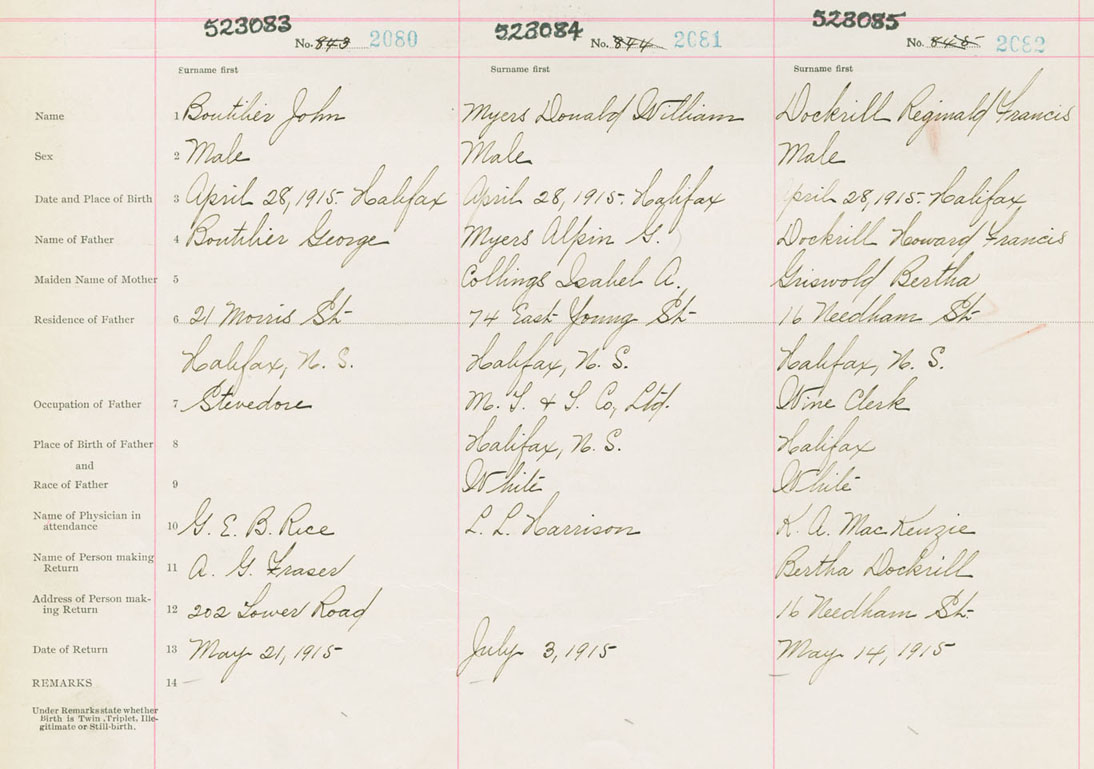 523083 523084 523085
No. 843 2080 No. 844 2081 No. 845 2082
Surname first Surname first Surname first
Name 1 Boutilier John Myers Donald William Dockrill Reginald Francis
Sex 2 Male Male Male
Date and Place of Birth 3 April 28, 1915. Halifax April 28, 1915. Halifax April 28, 1915. Halifax
Name of Father 4 Boutilier George Myers Alpin G. Dockrill Howard Francis
Maiden Name of Mother 5 Collings Isabel A. Griswold Bertha
Residence of Father 6 21 Morris St 74 East Young St 16 Needham St
Halifax, N. S. Halifax, N. S. Halifax, N. S.
Occupation of Father 7 Stevedore M. T. & T. Co, Ltd. Wine Clerk
Place of Birth of Father 8 Halifax, N. S. Halifax
and
Race of Father 9 White White
Name of Physician in
attendance 10 G. E. B. Rice L. L. Harrison K. A. MacKenzie
Name of Person making
Return 11 A. G. Fraser Bertha Dockrill
Address of Person mak-
ing Return 12 202 Lower Road 16 Needham St.
Date of Return 13 May 21, 1915 July 3, 1915 May 14, 1915
REMARKS 14
Under Remarks state whether
Birth is Twin, Triplet, Ille-
gitimate or Still-birth.